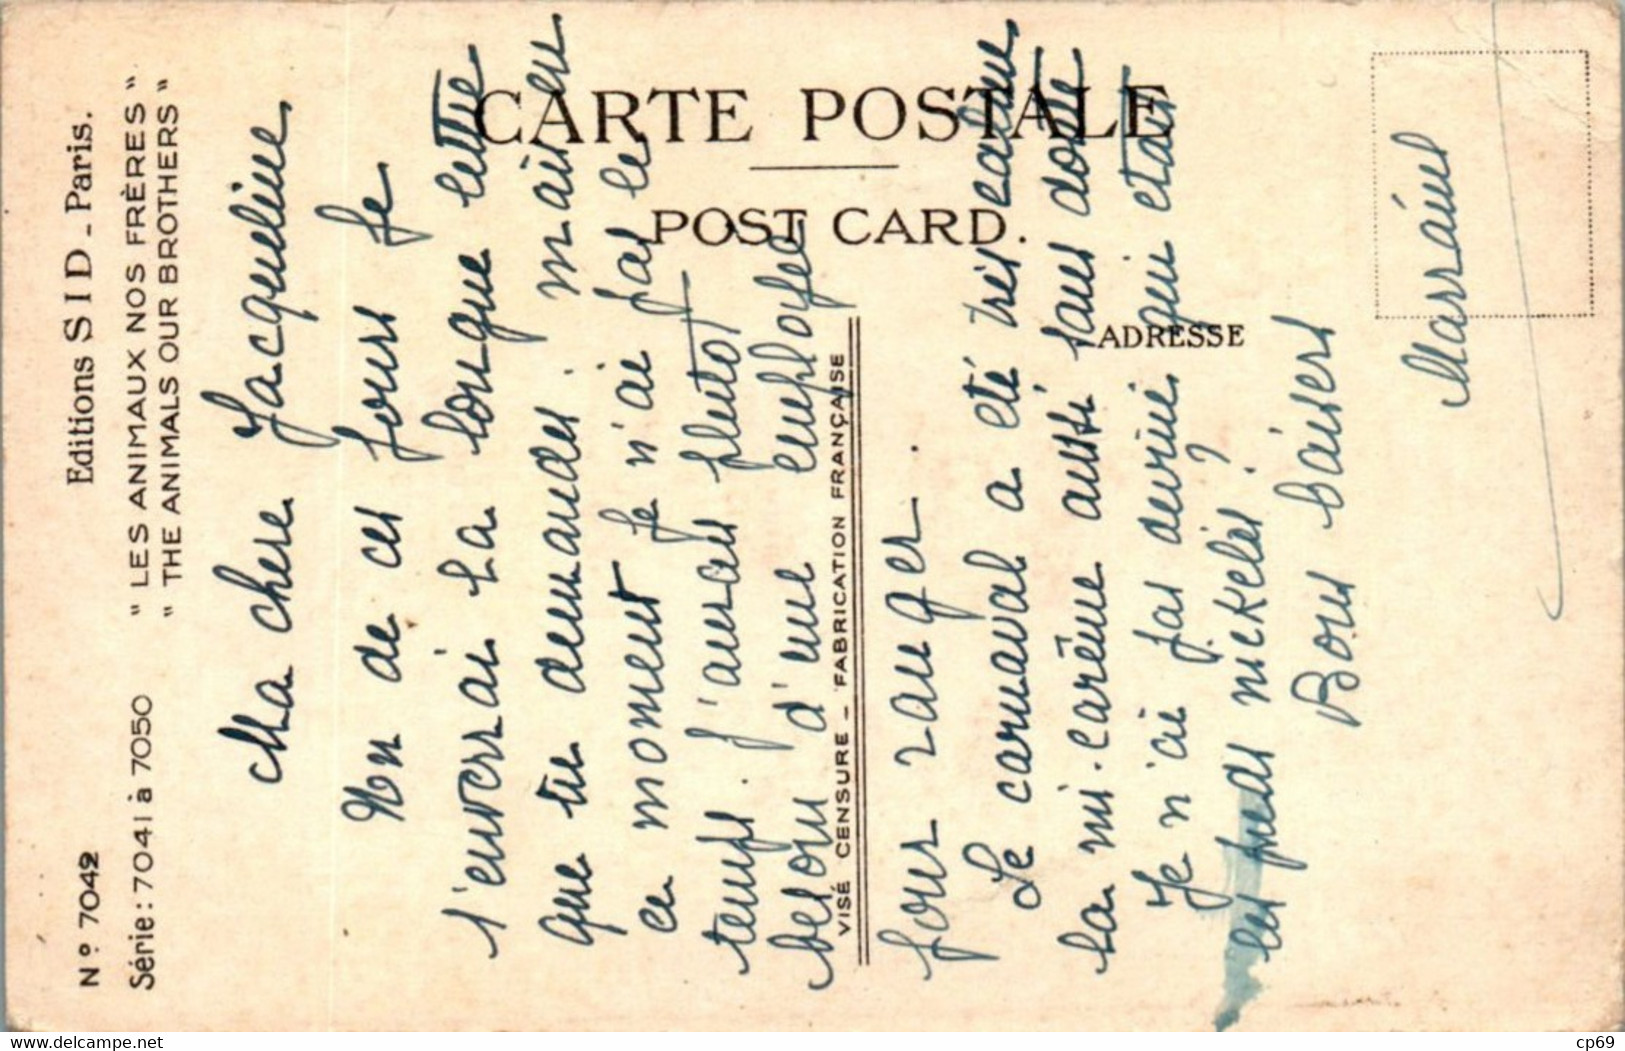 Editions SID _ Paris.
N° 7042
Série: 7041 à 7050
" LES ANIMAUX NOS FRÈRES "
" THE ANIMALS OUR BROTHERS "
CARTE POSTALE
POST CARD.
ADRESSE
VISÉ CENSURE _ FABRICATION FRANÇAISE
Ma chere Jacqueline
Un de ces jours je
t'enverrai la longue lettre
que tu demandes. Mais en
ce moment je n'ai pas le
temps. J'aurais plutot
besoin d'une employée
pour ranger.
Le carnaval a eté très calme,
la mi-carême aussi sans doute
Je n'ai pas deviné qui etait
les pieds nickelés?
Bons baisers
www.delcampe.net
cp69